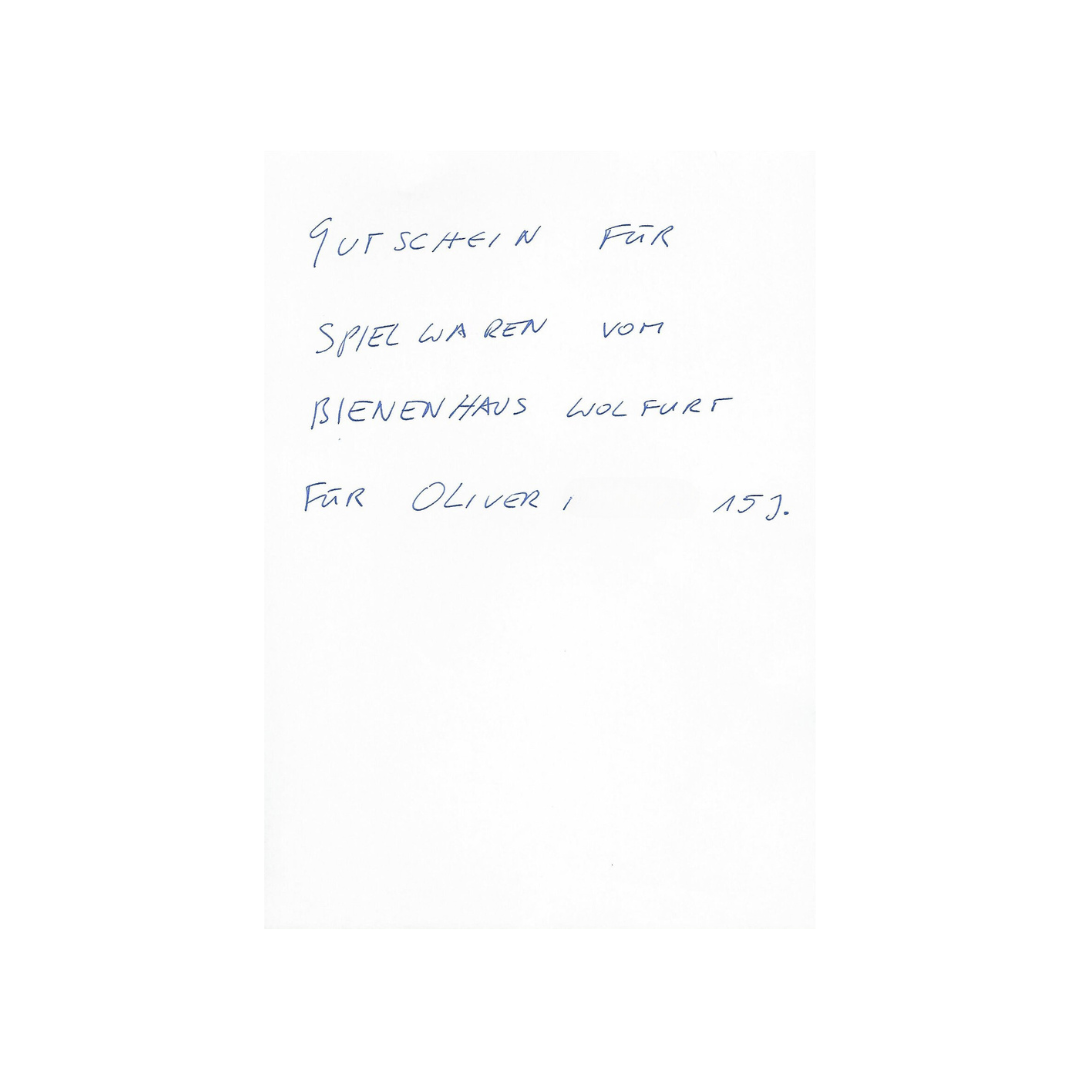 GUTSCHEIN FÜR
SPIELWAREN VOM
BIENENHAUS WOLFURT
FÜR OLIVER, 15 J.